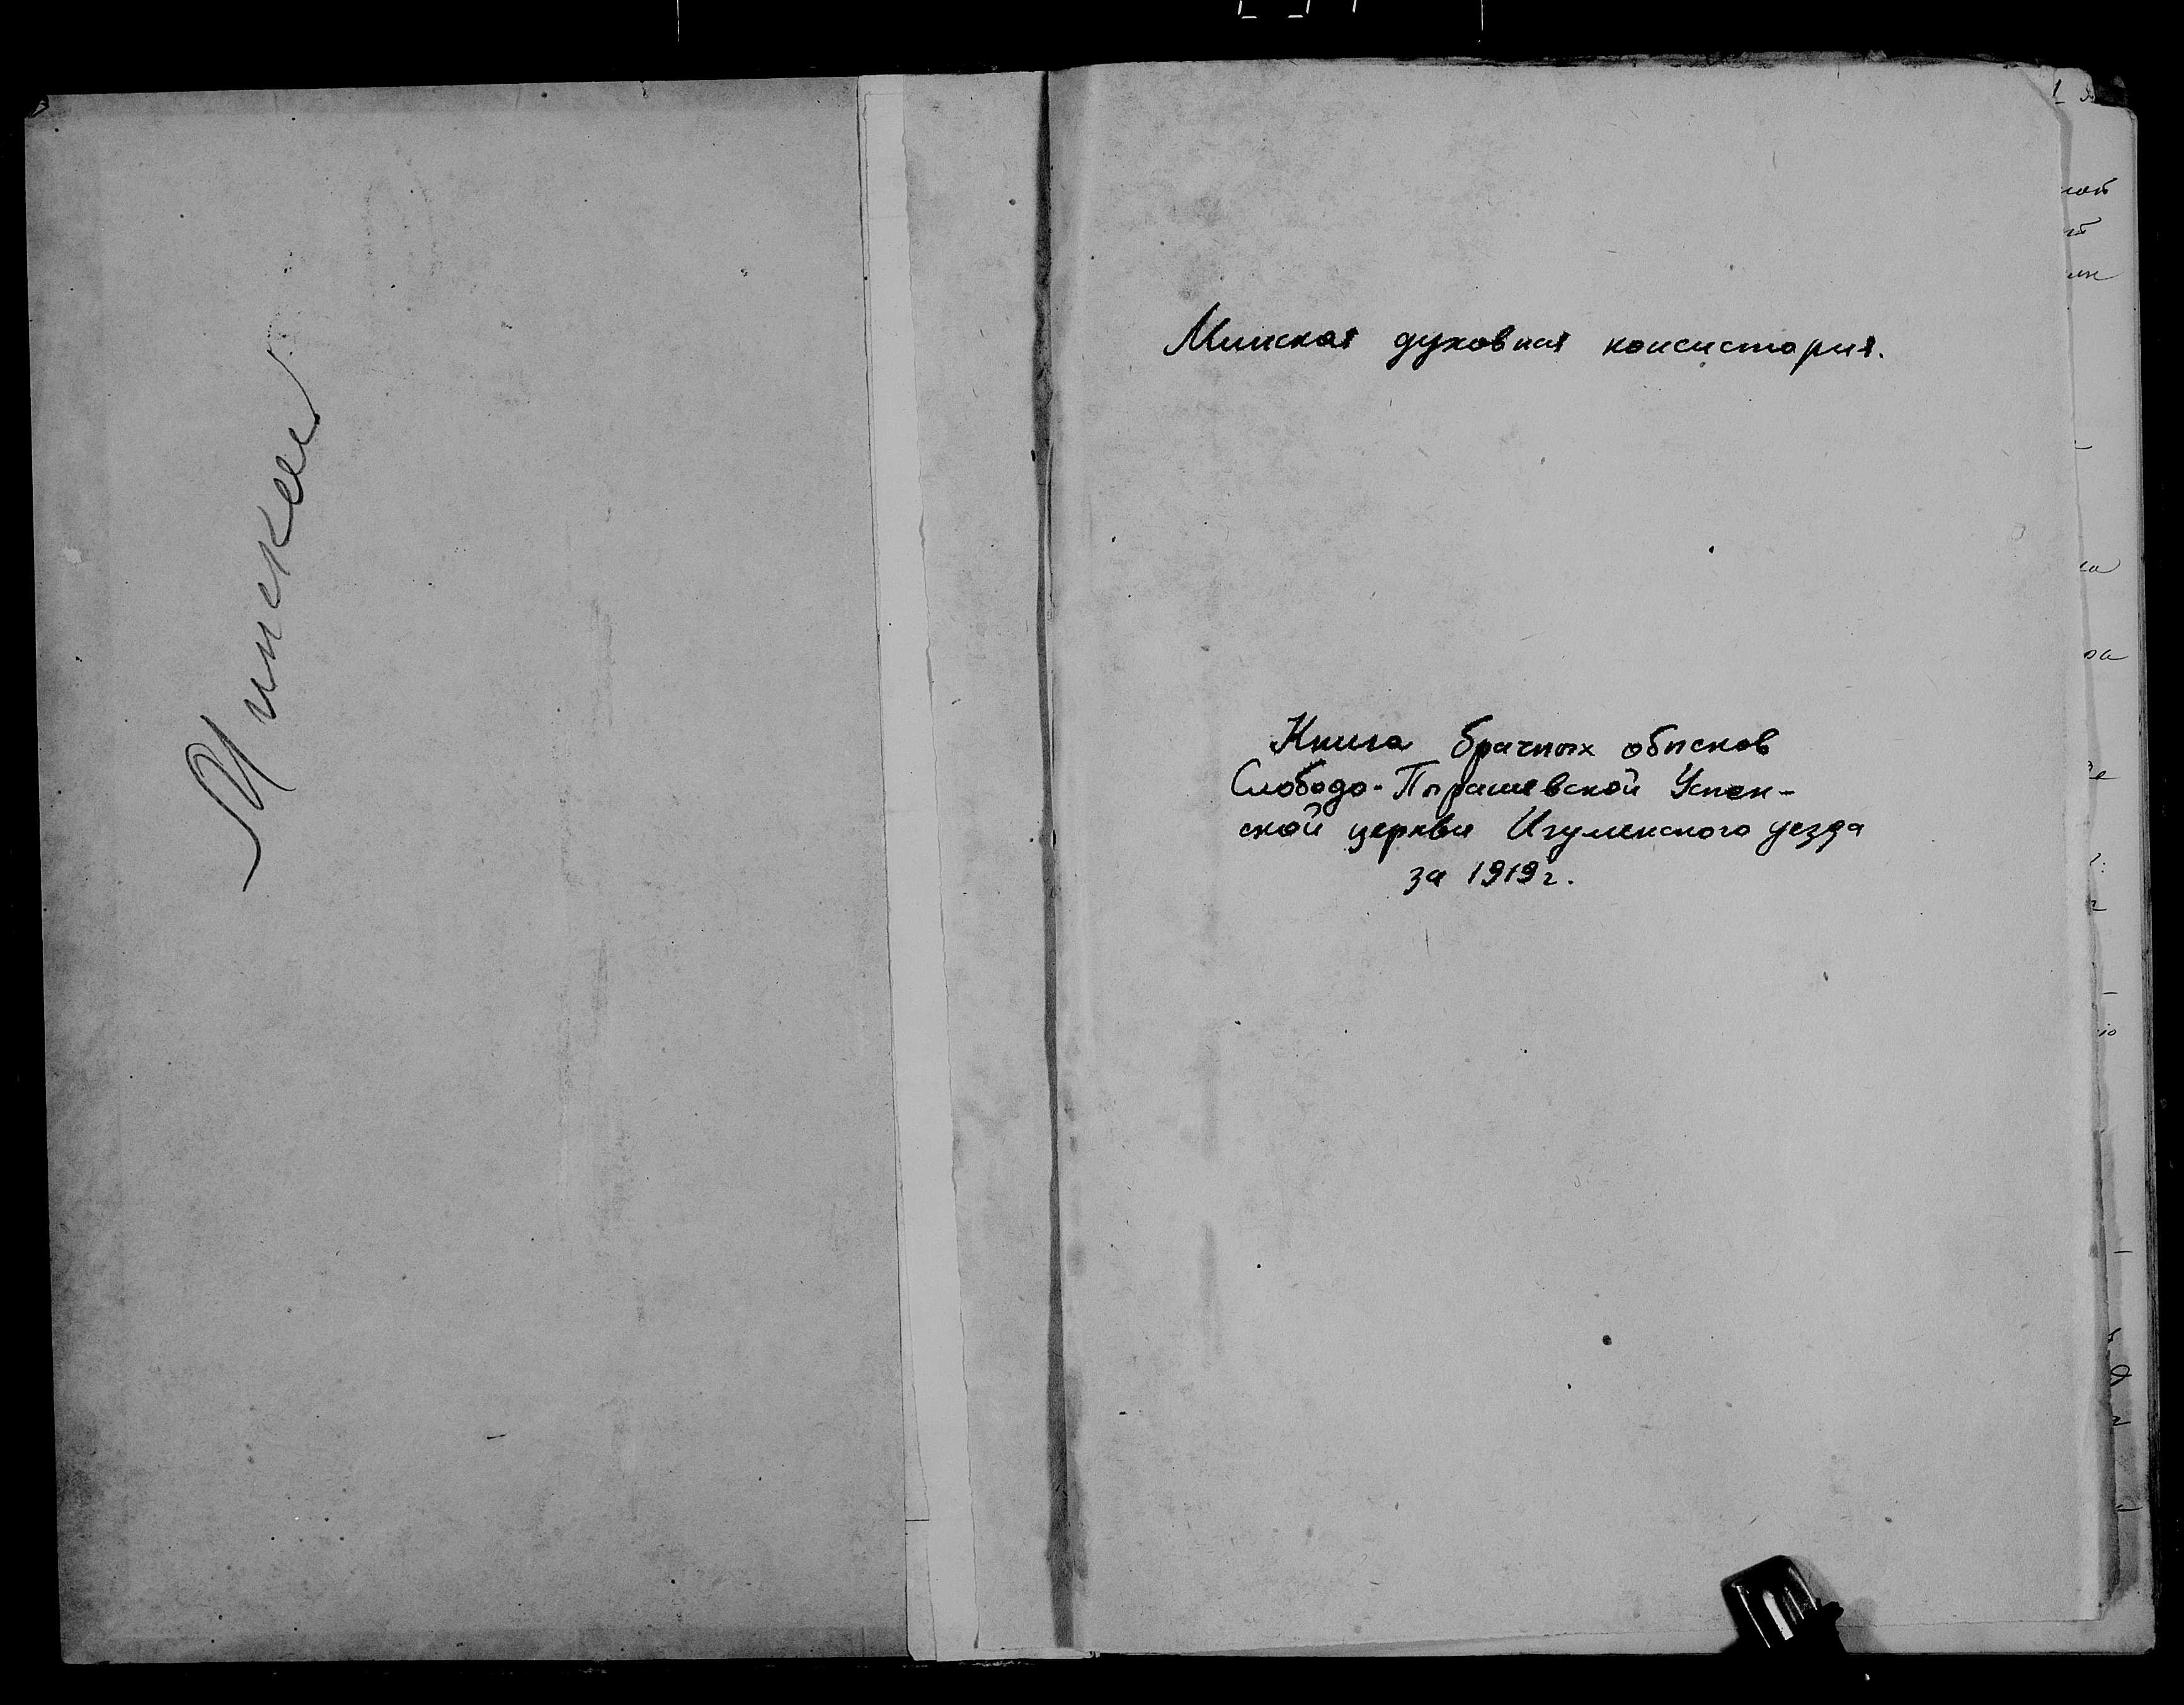 Минская духовная консистория.
Книга брачных обысков
Слободо-Пырашевской Успен-
ской церкви Игуменского уезда
за 1919 г.